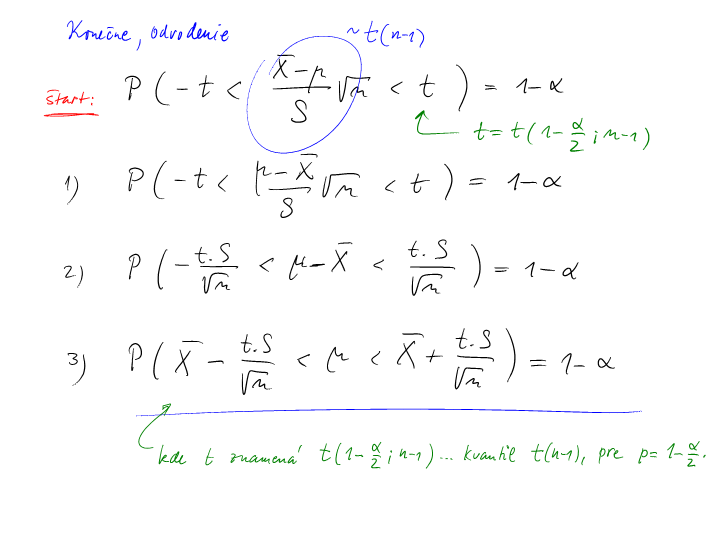 Konečne, odvodenie
~ t(n-1)
štart: P ( -t < (X̄-μ)/S √n < t ) = 1-α
t = t(1-α/2 ; n-1)
1) P ( -t < (μ-X̄)/S √n < t ) = 1-α
2) P ( -t.S/√n < μ-X̄ < t.S/√n ) = 1-α
3) P ( X̄ - t.S/√n < μ < X̄ + t.S/√n ) = 1-α
kde t znamená t(1-α/2 ; n-1) ... kvantil t(n-1), pre p= 1-α/2.